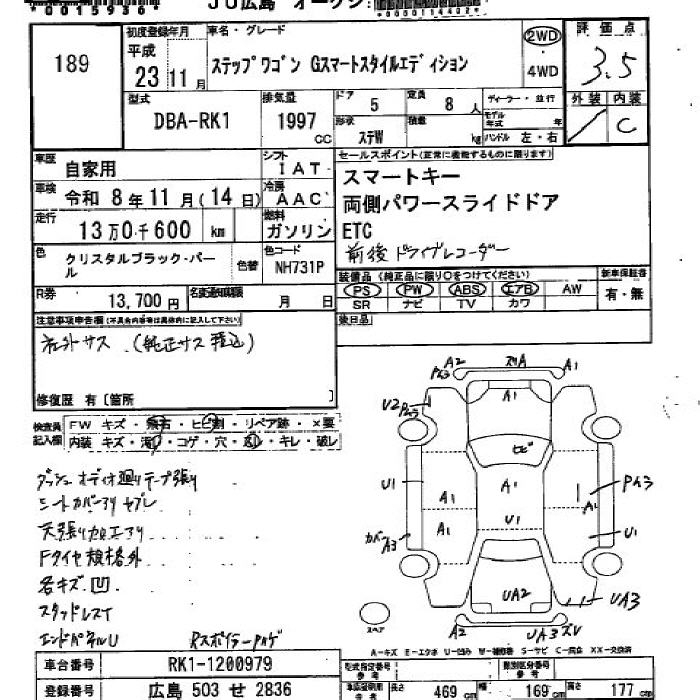 *00015936*
JU広島 オークション
*0000011440２*
189
初度登録年月
平成
23年 11月
車名・グレード
ステップワゴン Gスマートスタイルエディション
2WD
・
4WD
評価点
3.5
外装 内装
C
型式
DBA-RK1
排気量
1997 CC
ドア
5
定員
8人
形状
ステW
積載
kg
ディーラー・並行
モデル年式 年
ハンドル 左・右
車歴
自家用
シフト
IAT
車検
令和 8年 11月(14日)
冷房
AAC
走行
13万0千600 km
燃料
ガソリン
色
クリスタルブラック・パール
色替
色コード
NH731P
R券
13,700円
名変通知期限
月 日
セールスポイント(正常に機能するものに限ります)
スマートキー
両側パワースライドドア
ETC
前後ドライブレコーダー
装備品(純正品に限り○をつけてください)
PS PW ABS エアB AW
SR ナビ TV カワ
新車保証書
有・無
後日品
注意事項申告欄(不具合内容等は具体的に記入して下さい)
社外サス (純正サス積込)
修復歴 有 [箇所 ]
検査員記入欄
FW キズ・飛石・ヒビ割・リペア跡・×要
内装 キズ・汚れ・コゲ・穴・キレ・破レ
ダッシュオーディオ廻りテープ張り
シートカバーアリ ヤブレ
天張り加工アリ
Fタイヤ規格外
各キズ.凹
スタッドレスT
エンドパネルU Rスポイラーハゲ
A2 A1
A1
U2
ヒビ
U1 A1 A1 A1 PA3
A1 U1 U1
カバーA3
UA2 UA3
A2 UA3
スペア
A-キズ E-エクボ U-凹み W-補修跡 S-サビ C-腐食 XX-交換済
車台番号
RK1-1200979
登録番号
広島 503 せ 2836
型式指定番号
参考
類別区分番号
参考
長さ 469 cm
幅 169 cm
高さ 177 cm